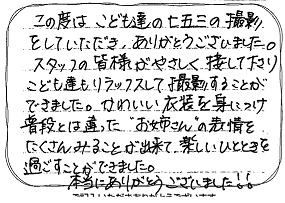 この度は こども達の七五三の撮影
をしていただき、ありがとうございました。
スタッフの皆様がやさしく接して下さり
こども達もリラックスして撮影することが
できました。かわいい衣装を身につけ
普段とは違った"お姉さん"の表情を
たくさんみることが出来、楽しいひとときを
過ごすことができました。
本当にありがとうございました!!